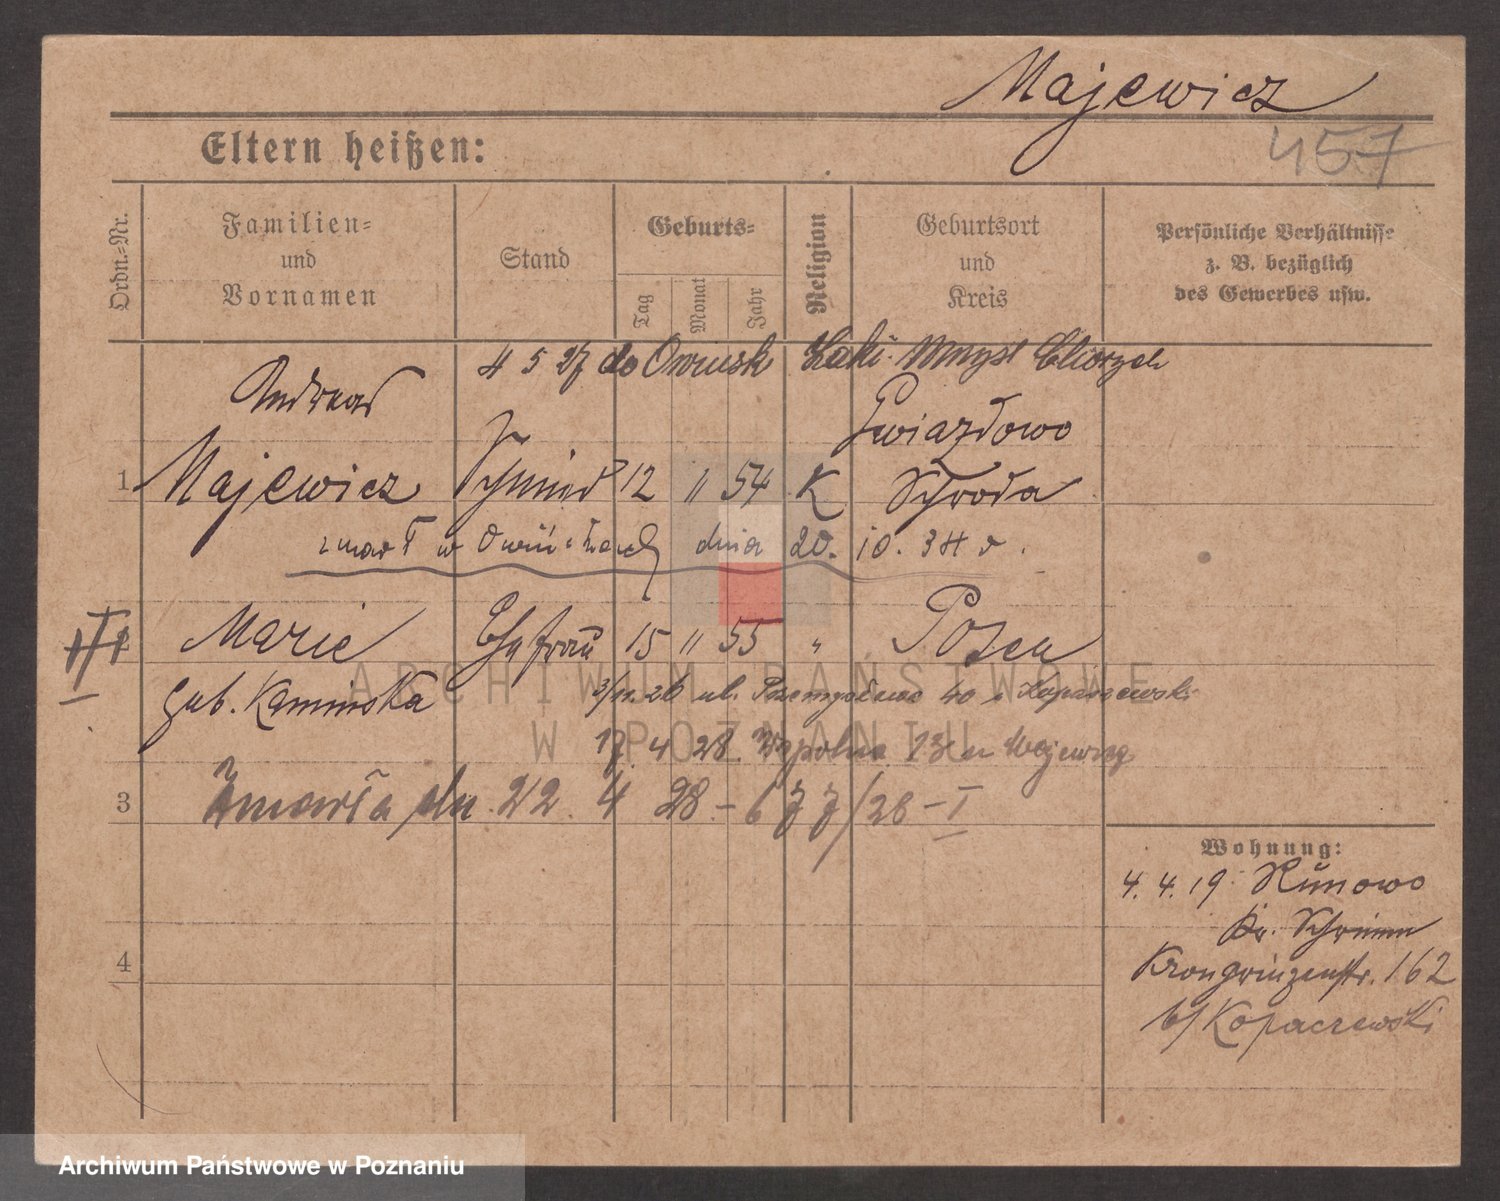 Majewicz
457
Eltern heißen:
Ordn.-Nr.
Familien-
und
Vornamen
Stand
Geburts-
Tag
Monat
Jahr
Religion
Geburtsort
und
Kreis
Persönliche Verhältnisse
z. B. bezüglich
des Gewerbes usw.
4 5 27 do Owinsk Zakł. Umysł Chorych
Andreas
Gwiazdowo
1 Majewicz Schmied 12 11 54 K Schroda
zmarł w Owińskach dnia 20. 10. 34 r.
Marie Ehefrau 15 11 55 " Posen
geb. Kaminska
3/11. 26 ul. Przemysłowa 40 Kopaczewski
17. 4 28. Wspólna 13 Majewicz
3 Zmarła dn. 22. 4 28 - 677/28 - I
4
Wohnung:
4. 4. 19. Runowo
Kr. Schrimm
Kronprinzenstr. 162
b/ Kopaczewski
ARCHIWUM PAŃSTWOWE
W POZNANIU
Archiwum Państwowe w Poznaniu